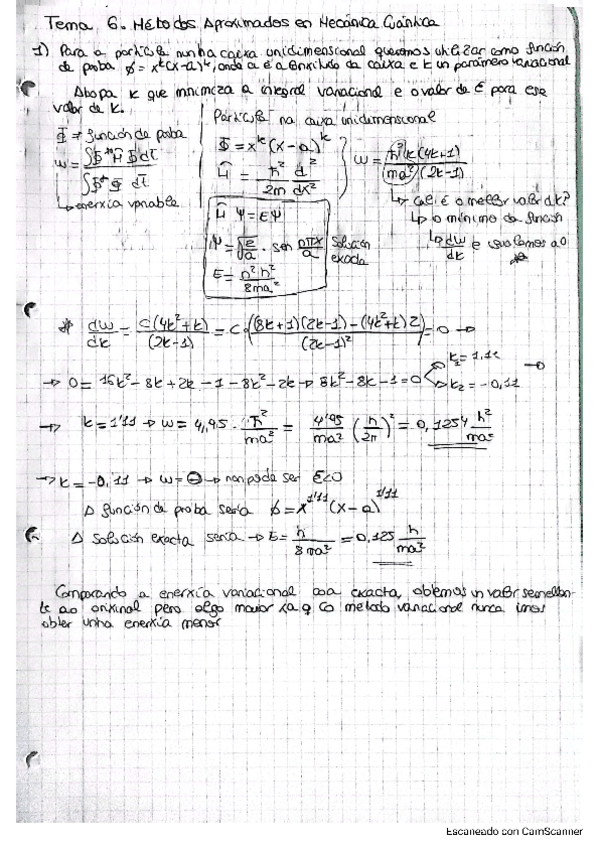 Tema 6. Métodos Aproximados en Mecánica Cuántica
1) Para a partícula nunha caixa unidimensional queremos utilizar como función
de proba φ = x^k (x-a)^k, onde a é a lonxitude da caixa e k un parámetro variacional
Atopa k que minimiza a integral variacional e o valor de E para ese
valor de k.
Partícula na caixa unidimensional
Φ ⇒ función de proba
W = ∫Φ* Ĥ Φ dτ / ∫Φ* Φ dτ
↳ enerxía
Φ = x^k (x-a)^k
Ĥ = - ħ²/2m d²/dx²
W = ħ² k(4k+1) / ma² (2k-1)
↳ Cal é o mellor valor de k?
↳ o mínimo da función
↳ dW/dk e igualamos a 0
Ĥ Ψ = EΨ
Ψ = √2/a · sen nπx/a
E = n² h² / 8ma²
Solución
exacta
* dW/dk = C(4k²+k)/(2k-1) = C · ((8k+1)(2k-1)-(4k²+k)2)/(2k-1)² = 0 →
→ 0 = 16k² - 8k + 2k - 1 - 8k² - 2k → 8k² - 8k - 1 = 0 k₁ = 1,11 k₂ = -0,11 →
→ k = 1'11 → W = 4,95 · ħ²/ma² = 4'95/ma² (h/2π)² = 0,1254 h²/ma²
→ k = -0,11 → W = ⊖ → non pode ser E<0
Δ función de proba sería φ = x^1'11 (x-a)^1'11
Δ Solución exacta sería → E = h/8ma² = 0,125 h/ma²
Comparando a enerxía variacional coa exacta, obtemos un valor semellan-
te ao orixinal pero algo maior xa q co método variacional nunca imos
obter unha enerxía menor
Escaneado con CamScanner